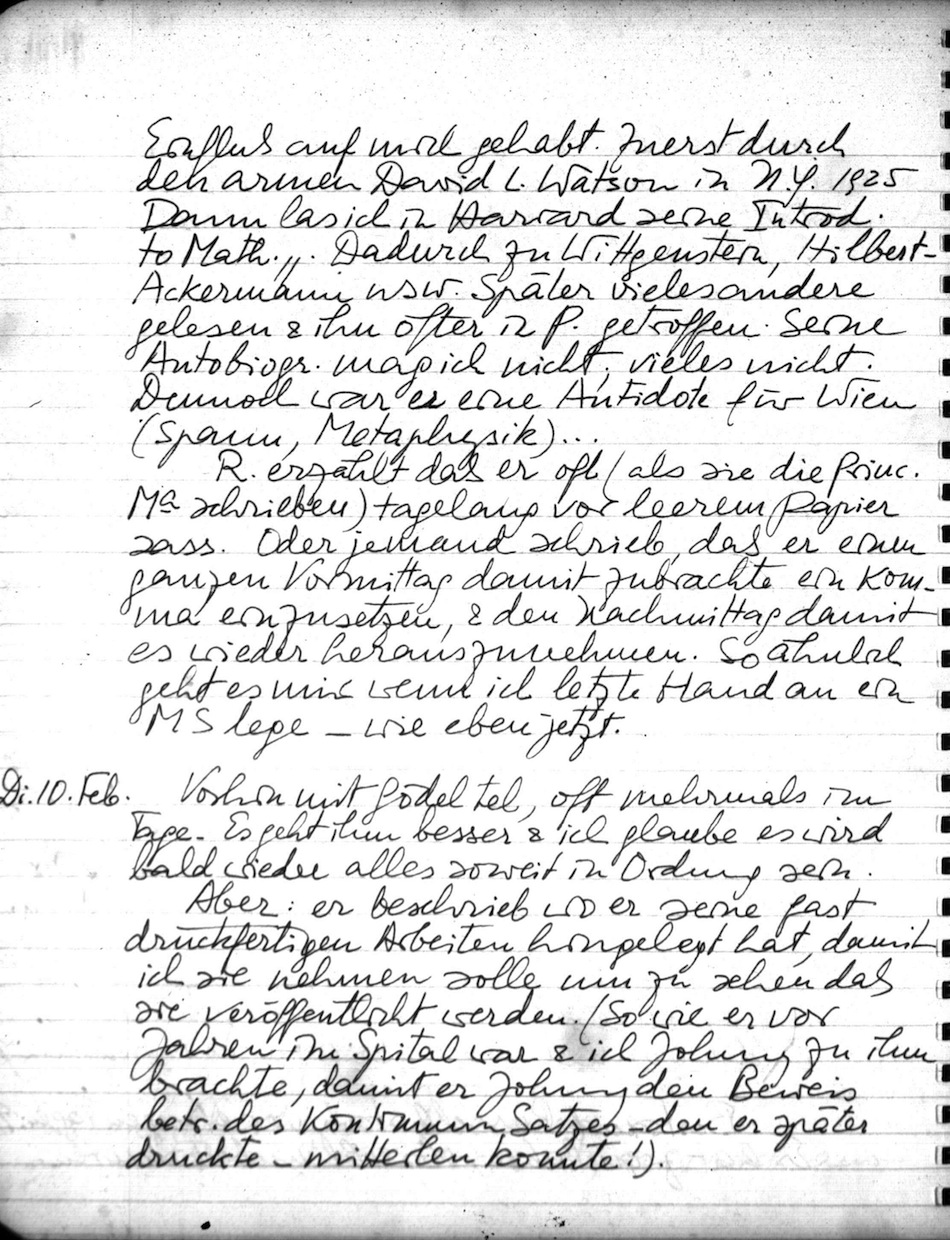 Einfluß auf mich gehabt. Zuerst durch
den armen David L. Watson in N.Y. 1925
Dann las ich in Harvard seine Introd.
to Math. „. Dadurch zu Wittgenstein, Hilbert-
Ackermann usw. Später vieles andere
gelesen & ihn öfter in P. getroffen. Seine
Autobiogr. mag ich nicht, vieles nicht.
Dennoch war er eine Antidote für Wien
(Spann, Metaphysik)...
R. erzählt daß er oft (als sie die Princ.
Ma schrieben) tagelang vor leerem Papier
sass. Oder jemand schrieb, daß er einen
ganzen Vormittag damit zubrachte ein Kom-
ma einzusetzen, & den Nachmittag damit
es wieder herauszunehmen. So ähnlich
geht es mir wenn ich letzte Hand an ein
MS lege – wie eben jetzt.
Di. 10. Feb. Vorhin mit Gödel tel, oft mehrmals im
Tage. Es geht ihm besser & ich glaube es wird
bald wieder alles soweit in Ordnung sein.
Aber: er beschrieb wo er seine fast
druckfertigen Arbeiten hingelegt hat, damit
ich sie nehmen solle um zu sehen daß
sie veröffentlicht werden. (So wie er vor
Jahren im Spital war & ich Johnny zu ihm
brachte, damit er Johnny den Beweis
betr. des Kontinuum Satzes – den er später
druckte – mitteilen konnte!).